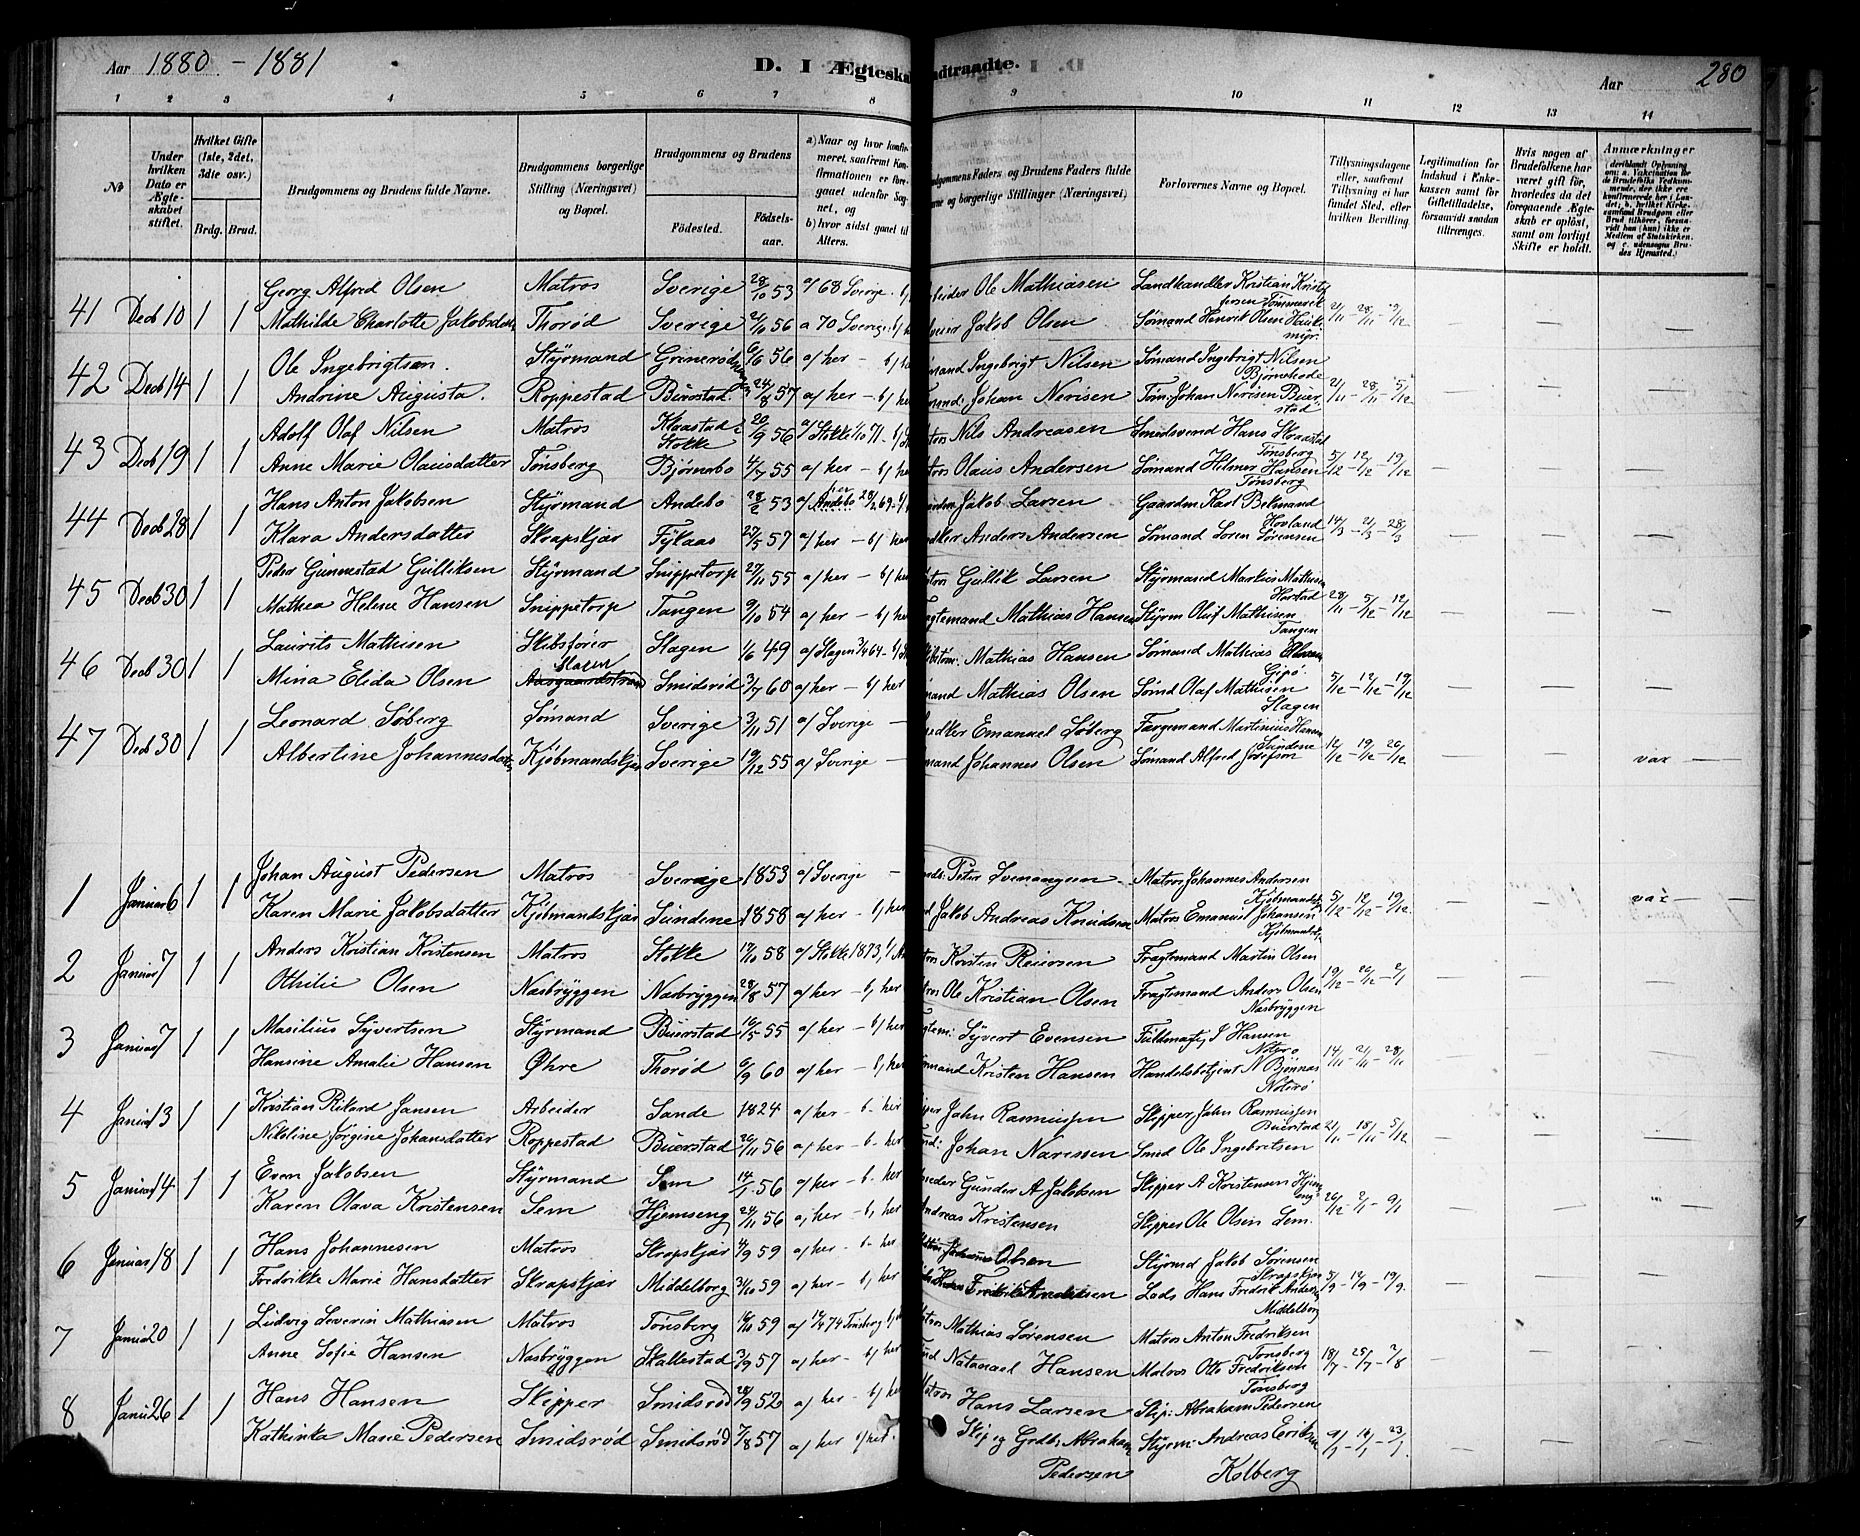 Aar 1880 - 1881 D. I Ægteska ndtraadte. Aar 280
1 2 3 4 5 6 7 8 9 10 11 12 13 14
No
Under hvilken Dato er Ægteskabet stiftet.
Hvilket Gifte (1ste, 2det, 3die osv.)
Brdg. Brud.
Brudgommens og Brudens fulde Navne.
Brudgommens borgerlige Stilling (Næringsvei) og Bopæl.
Brudgommens og Brudens
Fødested. Fødselsaar.
a) Naar og hvor konfirmeret, saafremt Konfirmationen er foregaaet udenfor Sognet, og b) hvor sidst gaaet til Alters.
udgommens Faders og Brudens Faders fulde vne og borgerlige Stillinger (Næringsvei)
Forlovernes Navne og Bopæl.
Tillysningsdagene eller, saafremt Tillysning ei har fundet Sted, efter hvilken Bevilling.
Legitimation for Indskud i Enkekassen samt for Giftetilladelse, forsaavidt saadan tiltrænges.
Hvis nogen af Brudefolkene har været gift før, hvorledes da det foregaaende Ægteskab er opløst, samt om lovligt Skifte er holdt.
Anmærkninger (deriblandt Oplysning om: a. Vaccination for de Brudefolks Vedkommende, der ikke ere konfirmerede her i Landet; b. hvilket Kirkesamfund Brudgom eller Brud tilhører, forsaavidt han (hun) ikke er Medlem af Statskirken, og c. udensogns Brudes Hjemsted.)
41 Decb 10 1 1 Georg Alfred Olsen Matros Sverige 28/10 53 a/ 68 Sverige - b/ beider Ole Mathiasen Landhandler Kristian Kristofersen Tømmervik 21/11 - 28/11 - 5/12
Mathilde Charlotte Jakobsdatter Thorød Sverige 21/11 56 a 70 Sverige - b/ Jakob Olsen Sømand Henrik Olsen Haukemyr.
42 Decb 14 1 1 Ole Ingebrigtsen. Styrmand Grimerød 6/6 56 a/ her - b/ her mand Ingebrigt Nilsen Sømand Ingebrigt Nilsen 21/11 - 28/11 - 5/12
Andrine Augusta. Roppestad Buerstad 24/8 57 a/ her - b/ her Johan Nerisen Tøm: Johan Nerisen Buerstad
43 Decb 19 1 1 Adolf Olaf Nilsen Matros Klaastad Stokke 20/9 56 a/ Stokke 1/10 71 - b/ tros Nils Andreasen Smedsvend Hans Skaastad Tønsberg 5/12 - 12/12 - 19/12
Anne Marie Olausdatter Tønsberg Bjørnebo 4/7 55 a/ her - b/ her tros Olaus Andersen Sømand Helmer Hansen Tønsberg
44 Decb 28 1 1 Hans Anton Jakobsen Styrmand Andebo 28/2 53 a/ Andebo 28/2 69 - b/ Jakob Larsen Gaardm Karl Bekmand Hovland 14/3 - 21/3 - 28/3
Klara Andersdatter Skrapskjær Fylaas 27/5 57 a/ her - b/ her Anders Andersen Sømand Søren Sørensen
45 Decb 30 1 1 Peder Gunnestad Gulliksen Styrmand Snippetorp 27/11 55 a/ her - b/ her tros Gullik Larsen Styrmand Markus Mathisen 28/11 - 5/12 - 12/12
Mathea Helene Hansen Snippetorp Tangen 9/10 54 a/ her - b/ her Fragtemand Mathias Hansen Styrm Oluf Mathisen Tangen
46 Decb 30 1 1 Laurits Mathisen Skibsfører Slagen 1/6 49 a/ Slagen 3/4 64 - b/ Mathias Hansen Sømand Mathias Gipø. 5/12 - 12/12 - 19/12
Mina Elida Olsen Slagen Smidsrød 3/7 60 a/ her - b/ her mand Mathias Olsen Sømd Olaf Mathisen Slagen
47 Decb 30 1 1 Leonard Søberg Sømand Sverige 3/11 51 a/ Sverige - edker Emanuel Søberg Færgemand Martinius Hansen Sundene 12/12 - 19/12 - 26/12
Albertine Johannesdatter Kjøbmandskjær Sverige 19/12 55 a/ Sverige - mand Johannes Olsen Sømand Alfred Josefson vax
1 Januar 6 1 1 Johan August Pedersen Matros Sverige 1853 a/ Sverige - Peter Svenungsen Matros Johannes Andersen Kjøbmandskj 5/12 - 12/12 - 19/12
Karen Marie Jakobsdatter Kjøbmandskjær Sundene 1858 a/ her - b/ her Jakob Andreas Knudsen Matros Emanuel Johansen Kjøbmandskj vax
2 Januar 7 1 1 Anders Kristian Kristensen Matros Stokke 17/10 58 a/ Stokke 1873, b/ tros Kristen Reiersen Fragtemand Martin Olsen 19/12 - 26/12 - 2/1
Othilie Olsen Nesbryggen Nesbryggen 28/8 57 a/ her - b/ her tros Ole Kristian Olsen Fragtemand Anders Olsen Nesbryggen
3 Januar 7 1 1 Masilius Syvertsen Styrmand Buerstad 16/5 55 a/ her - b/ her Syvert Evensen Fuldmægt. J Hansen Nøterø 14/11 - 21/11 - 28/11
Hansine Amalie Hansen Øhre Thorød 6/9 60 a/ her - b/ her mand Kristen Hansen Handelsbetjent N Bjønnes Nøterø
4 Januar 13 1 1 Kristian Rikard Jansen Arbeider Sande 1824 a/ her - b. her Jahn Rasmussen Skipper Jahn Rasmussen Buerstad 21/11 - 18/11 - 5/12
Nikoline Jørgine Johansdatter Roppestad Buerstad 20/11 56 a/ her - b. her Johan Narissen Smed Ole Ingebretsen
5 Januar 14 1 1 Even Jakobsen Styrmand Sem 14/1 56 a/ her - b. her Gunder A Jakobsen Skipper A Kristensen Hjemseng 26/12 - 2/1 - 9/1
Karen Olava Kristensen Sem Hjemseng 24/11 56 a/ her - b, her ndreas Kristensen Skipper Ole Olsen Sem.
6 Januar 18 1 1 Hans Johannesen Matros Skrapskjær 4/9 59 a/ her - b. her Johannes Olsen Styrmd Jakob Sørensen Skrapskjær 5/9 - 12/9 - 19/9.
Fredrikke Marie Hansdatter Skrapskjær Middelborg 31/10 59 a/ her - b, her Lods Hans Fredrik Andersen Middelborg
7 Janua 20 1 1 Ludvig Severin Mathiasen Matros Tønsberg 16/10 59 a/ 12/4 74 Tønsberg b/ tros Mathias Sørensen Matros Anton Fredriksen Tønsberg 18/7 - 25/7 - 2/8
Anne Sofie Hansen Nesbryggen Skallestad 3/9 57 a/ her - b/ her Natanael Hansen Matros Otto Fredriksen Tønsberg
8 Janu 26 1 1 Hans Hansen Skipper Smidsrød 28/9 52 a/ her - b/ her Matros Hans Larsen Skip: Abraham Pedersen 9/1 - 16/1 - 23/1
Kathinka Marie Pedersen Smidsrød Smidsrød 7/8 57 a/ her b/ her. Skip og Grdb: Abraham Pedersen Styrm: Andreas Eriksen Kolberg